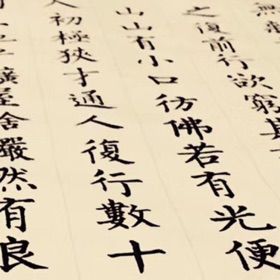 之復前行欲窮其
山山有小口彷佛若有光便
人初極狹才通人復行數十
曠屋舍嚴然有良